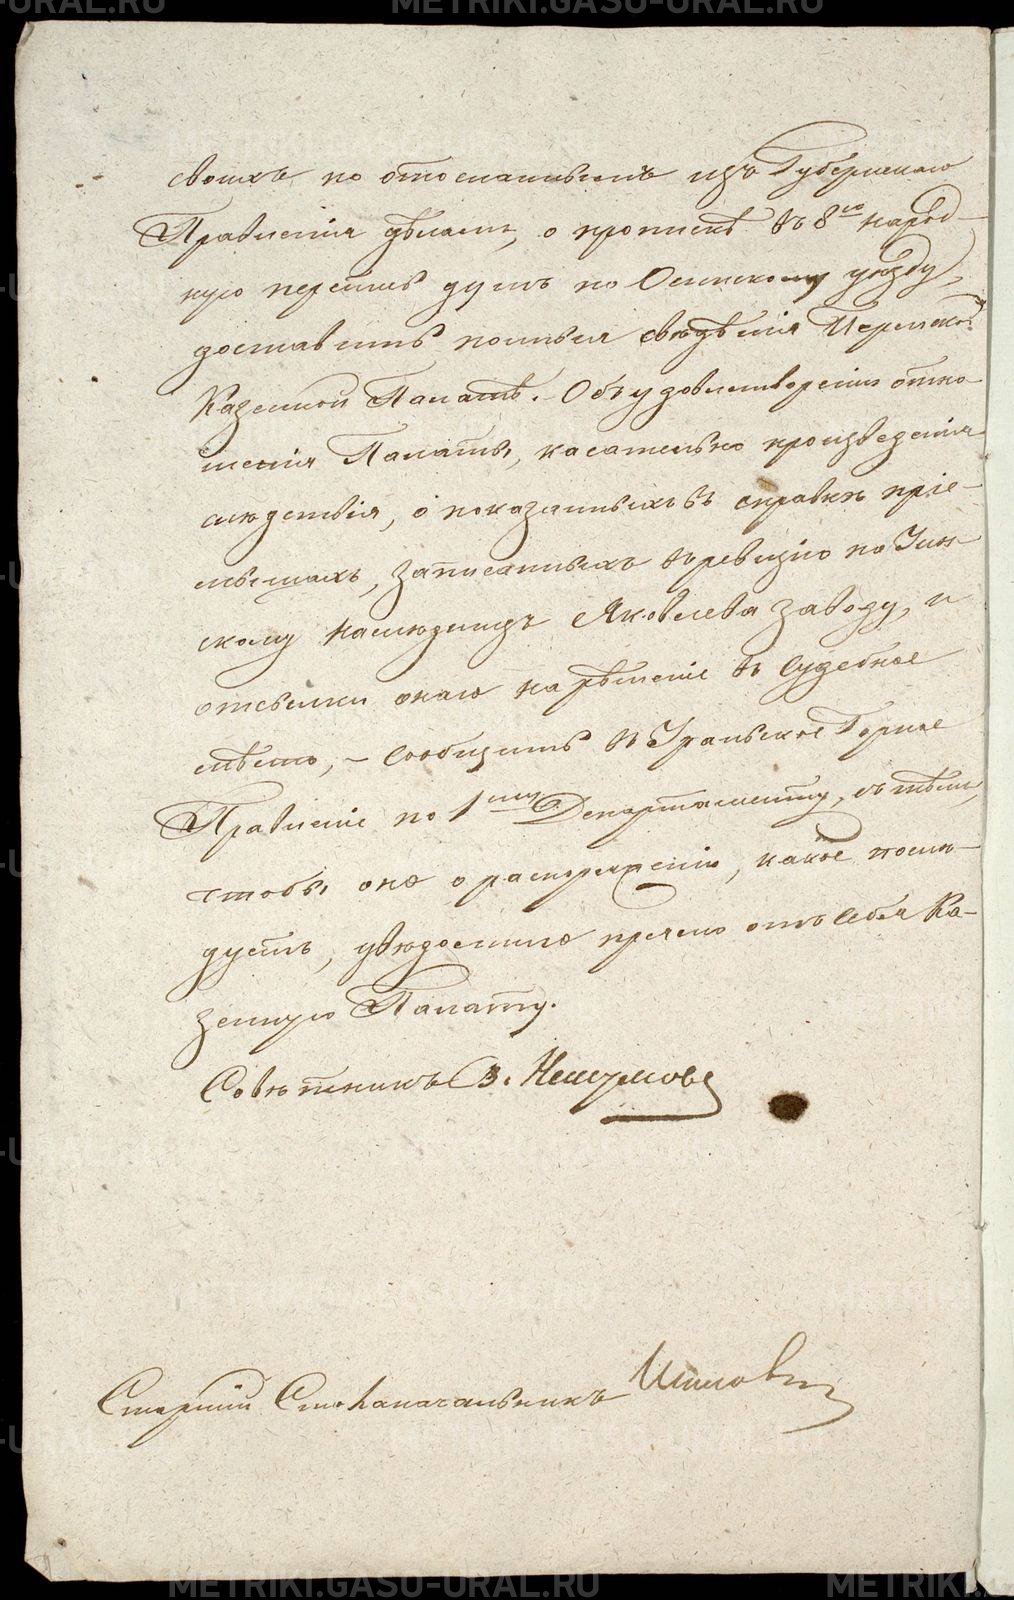 своихъ по отосланнымъ изъ Губернскаго
Правленія дѣламъ, о пропискѣ въ 8ю народ-
ную перепись душъ по Осинскому уѣзду,
доставить полныя свѣдѣнія Пермской
Казенной Палатѣ. - Объ удовлетвореніи отно-
шенія Палаты, касательно произведенія
слѣдствія, о показанныхъ въ справкѣ пріе-
мышахъ, записанныхъ въ ревизію по
скому наслѣдницъ Яковлева заводу, и
отсылки онаго на рѣшеніе въ Судебное
мѣсто, - сообщить въ Уральское Горное
Правленіе по 1му Департаменту, съ тѣмъ,
чтобы оно о распоряженіи, какое послѣ-
дуетъ, увѣдомило прямо отъ себя Ка-
зенную Палату.
Совѣтникъ
Старшій Столоначальникъ
METRIKI.GASU-URAL.RU